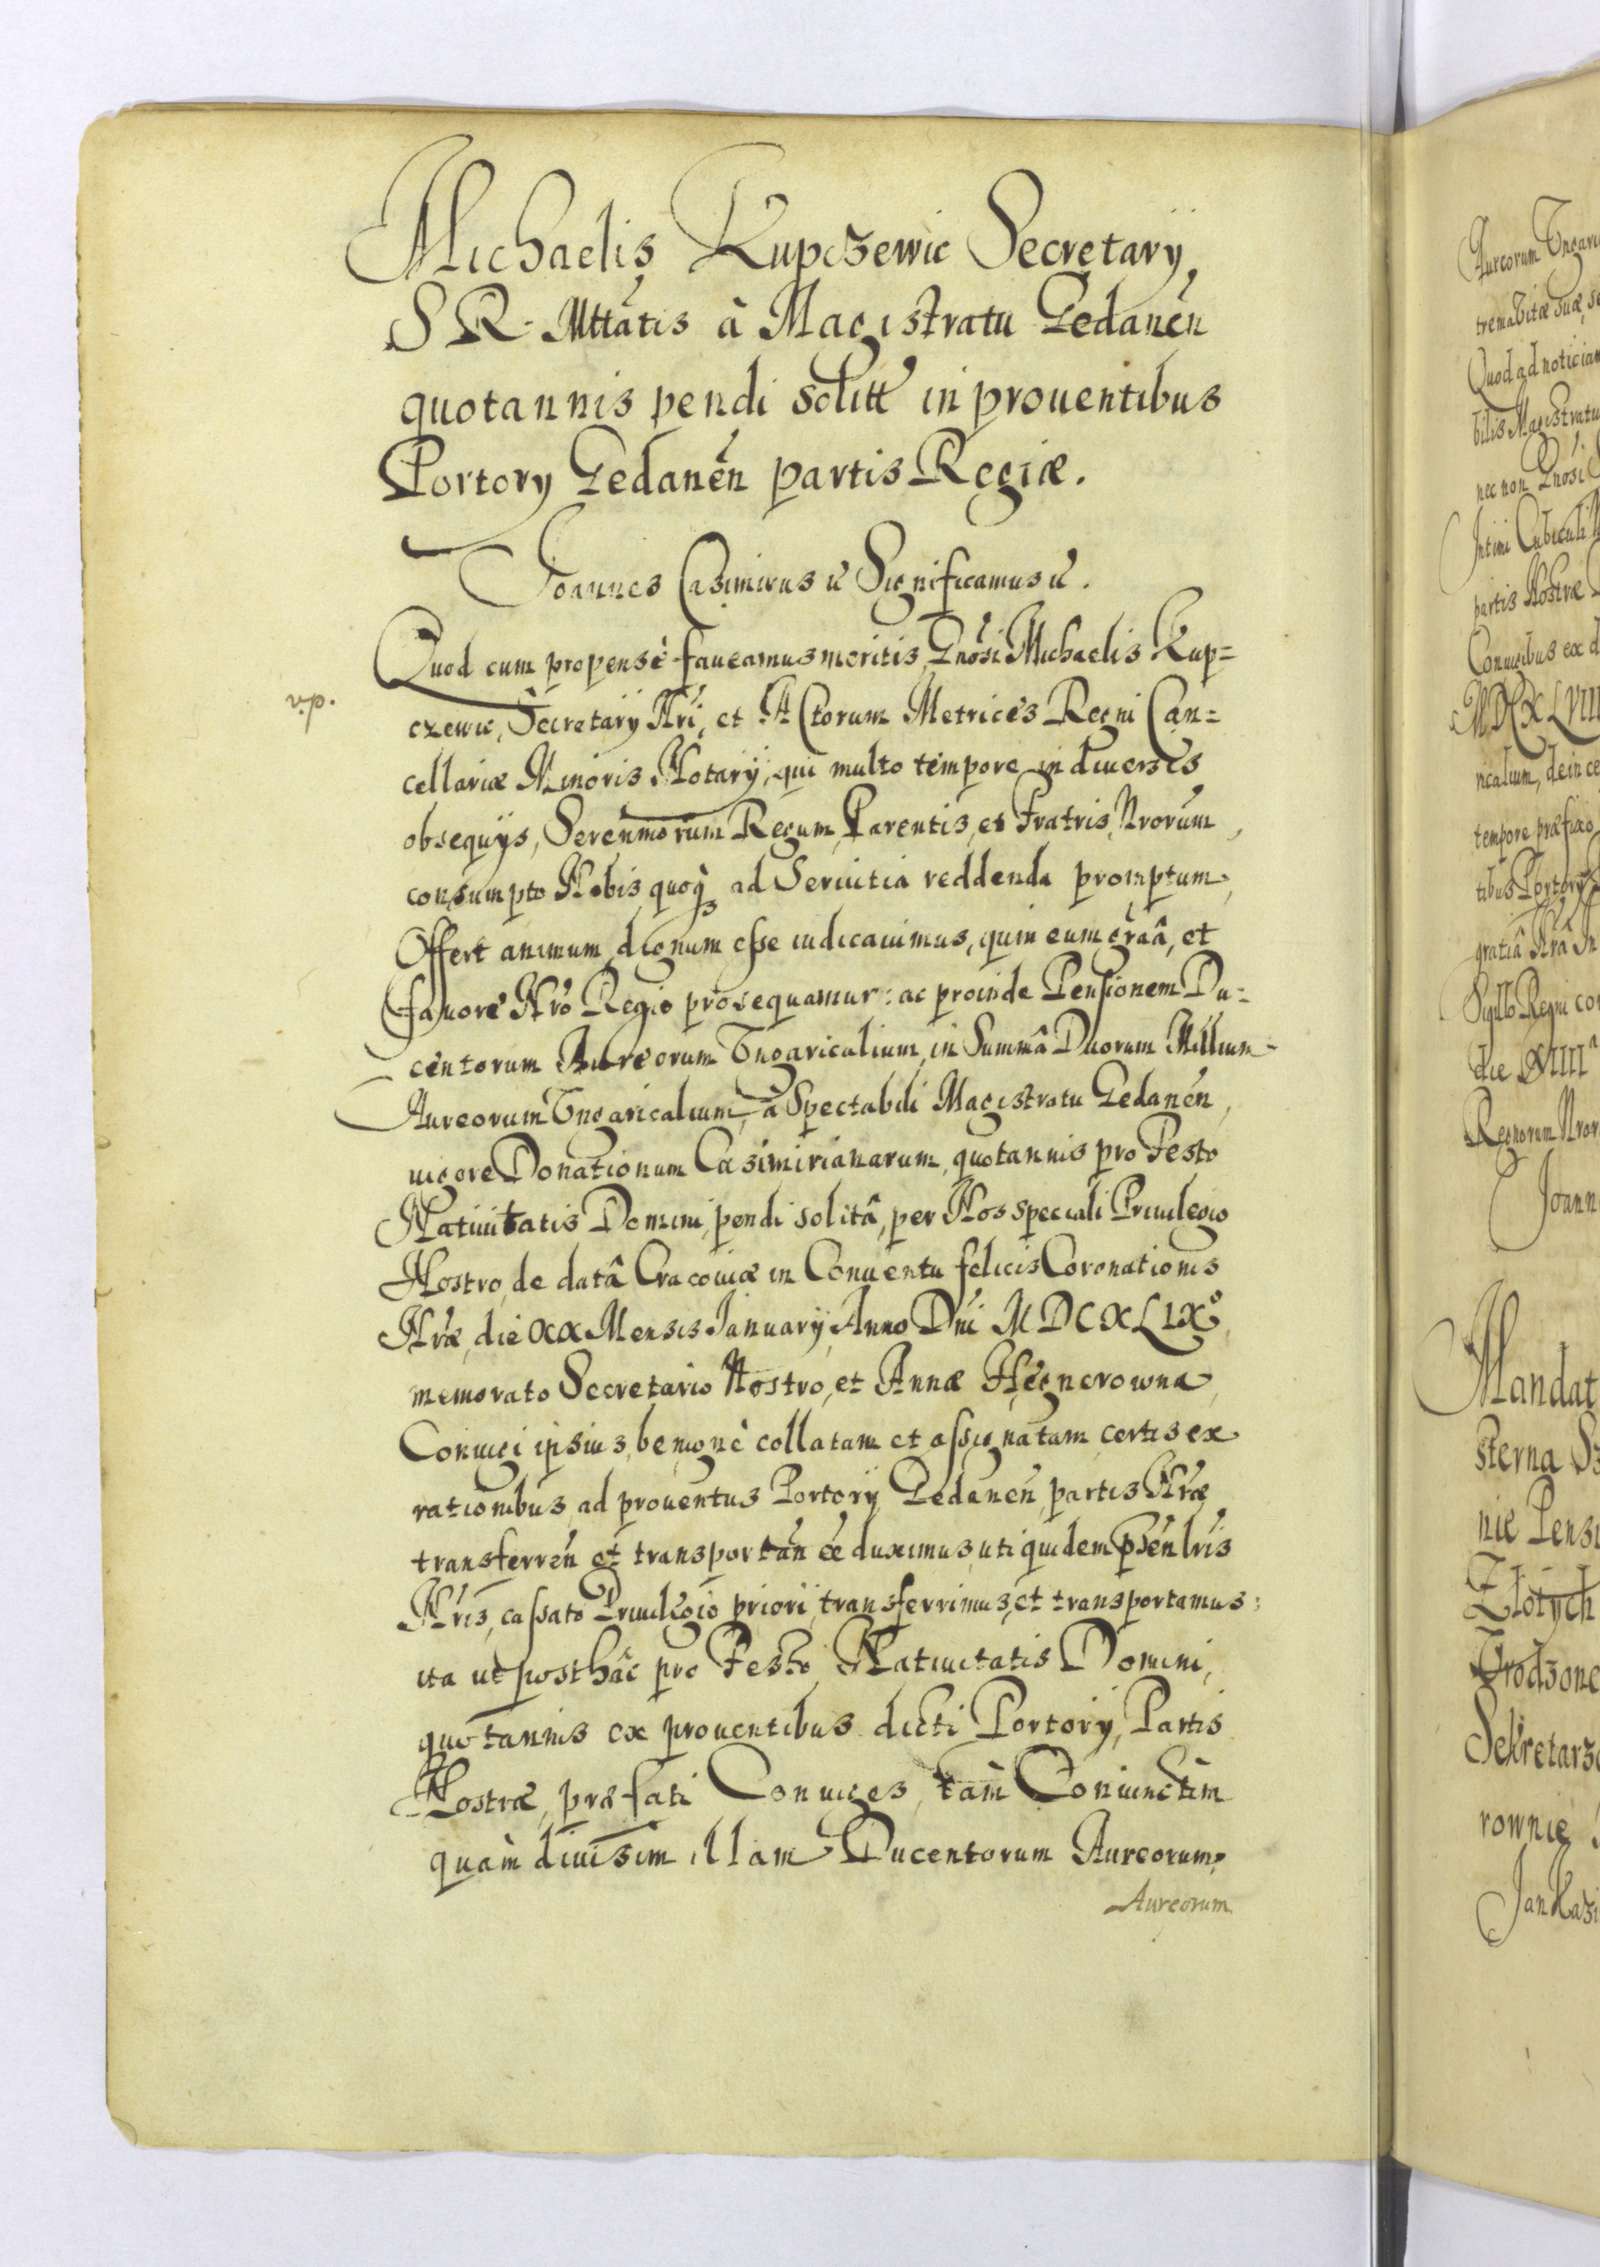 Michaelis Kupczewic Secretarÿ
S R. Mttatis à Magistratu Gedanen̄
quotannis pendi solitt in prouentibus
Portory Gedanen̄ partis Regiæ.
Joannes Casimirus &c Significamus &c.
Quod cum propensè faueamus meritis Gnosi Michaelis Kup=
czewic, Secretarÿ Nri, et Actorum Metrices Regni Can=
cellariæ Minoris Notarÿ, qui multo tempore in diuersis
obsequÿs, Serenmorum Regum, Parentis, et Fratris Nrorum
consumpto Nobis quoq3 ad Seruitia reddenda promptum
Offert animum, dignum esse iudicauimus, quin eum graâ, et
fauore Nro Regio prosequamur: ac proinde Pensionem Du=
centorum Aureorum Vngaricalium, in Summâ Duorum Millium
Aureorum Vngaricalium, à Spectabili Magistratu Gedanen̄,
uigore Donationum Casimirianarum, quotannis pro Festo
Natiuitatis Domini, pendi solitâ, per Nos speciali Priuilegio
Nostro, de datâ Cracouiæ in Conuentu felicis Coronationis
Nræ, die XX Mensis Januarÿ Anno Dni MDCXLIXo
memorato Secretario Nostro, et Annæ Hegnerowna
Coniugi ipsius, benignè collatam et assignatam, certis ex
rationibus, ad prouentus Portorÿ Gedanen̄, partis Nræ
transferren̄ et transportan̄ eē duximus, uti quidem psen̄ lris
Nris, cassato Priuilegio priori, transferrimus, et transportamus:
ita ut posthâc pro Festo Natiuitatis Domini,
quotannis ex prouentibus dicti Portorÿ, Partis
Nostræ, præfati Coniuges, tàm Coniunctim
quàm diuisim illam Ducentorum Aureorum
Aureorum
Aureorum
Quod ad
nec non
partis Nostræ
Coniugibus ex
tempore præfixo
gratiâ Nrâ
Sigillo Regni
die XIIIIa
Joann
Mandat
sterna
nie
Złotÿch
rownie
Jan Kazi